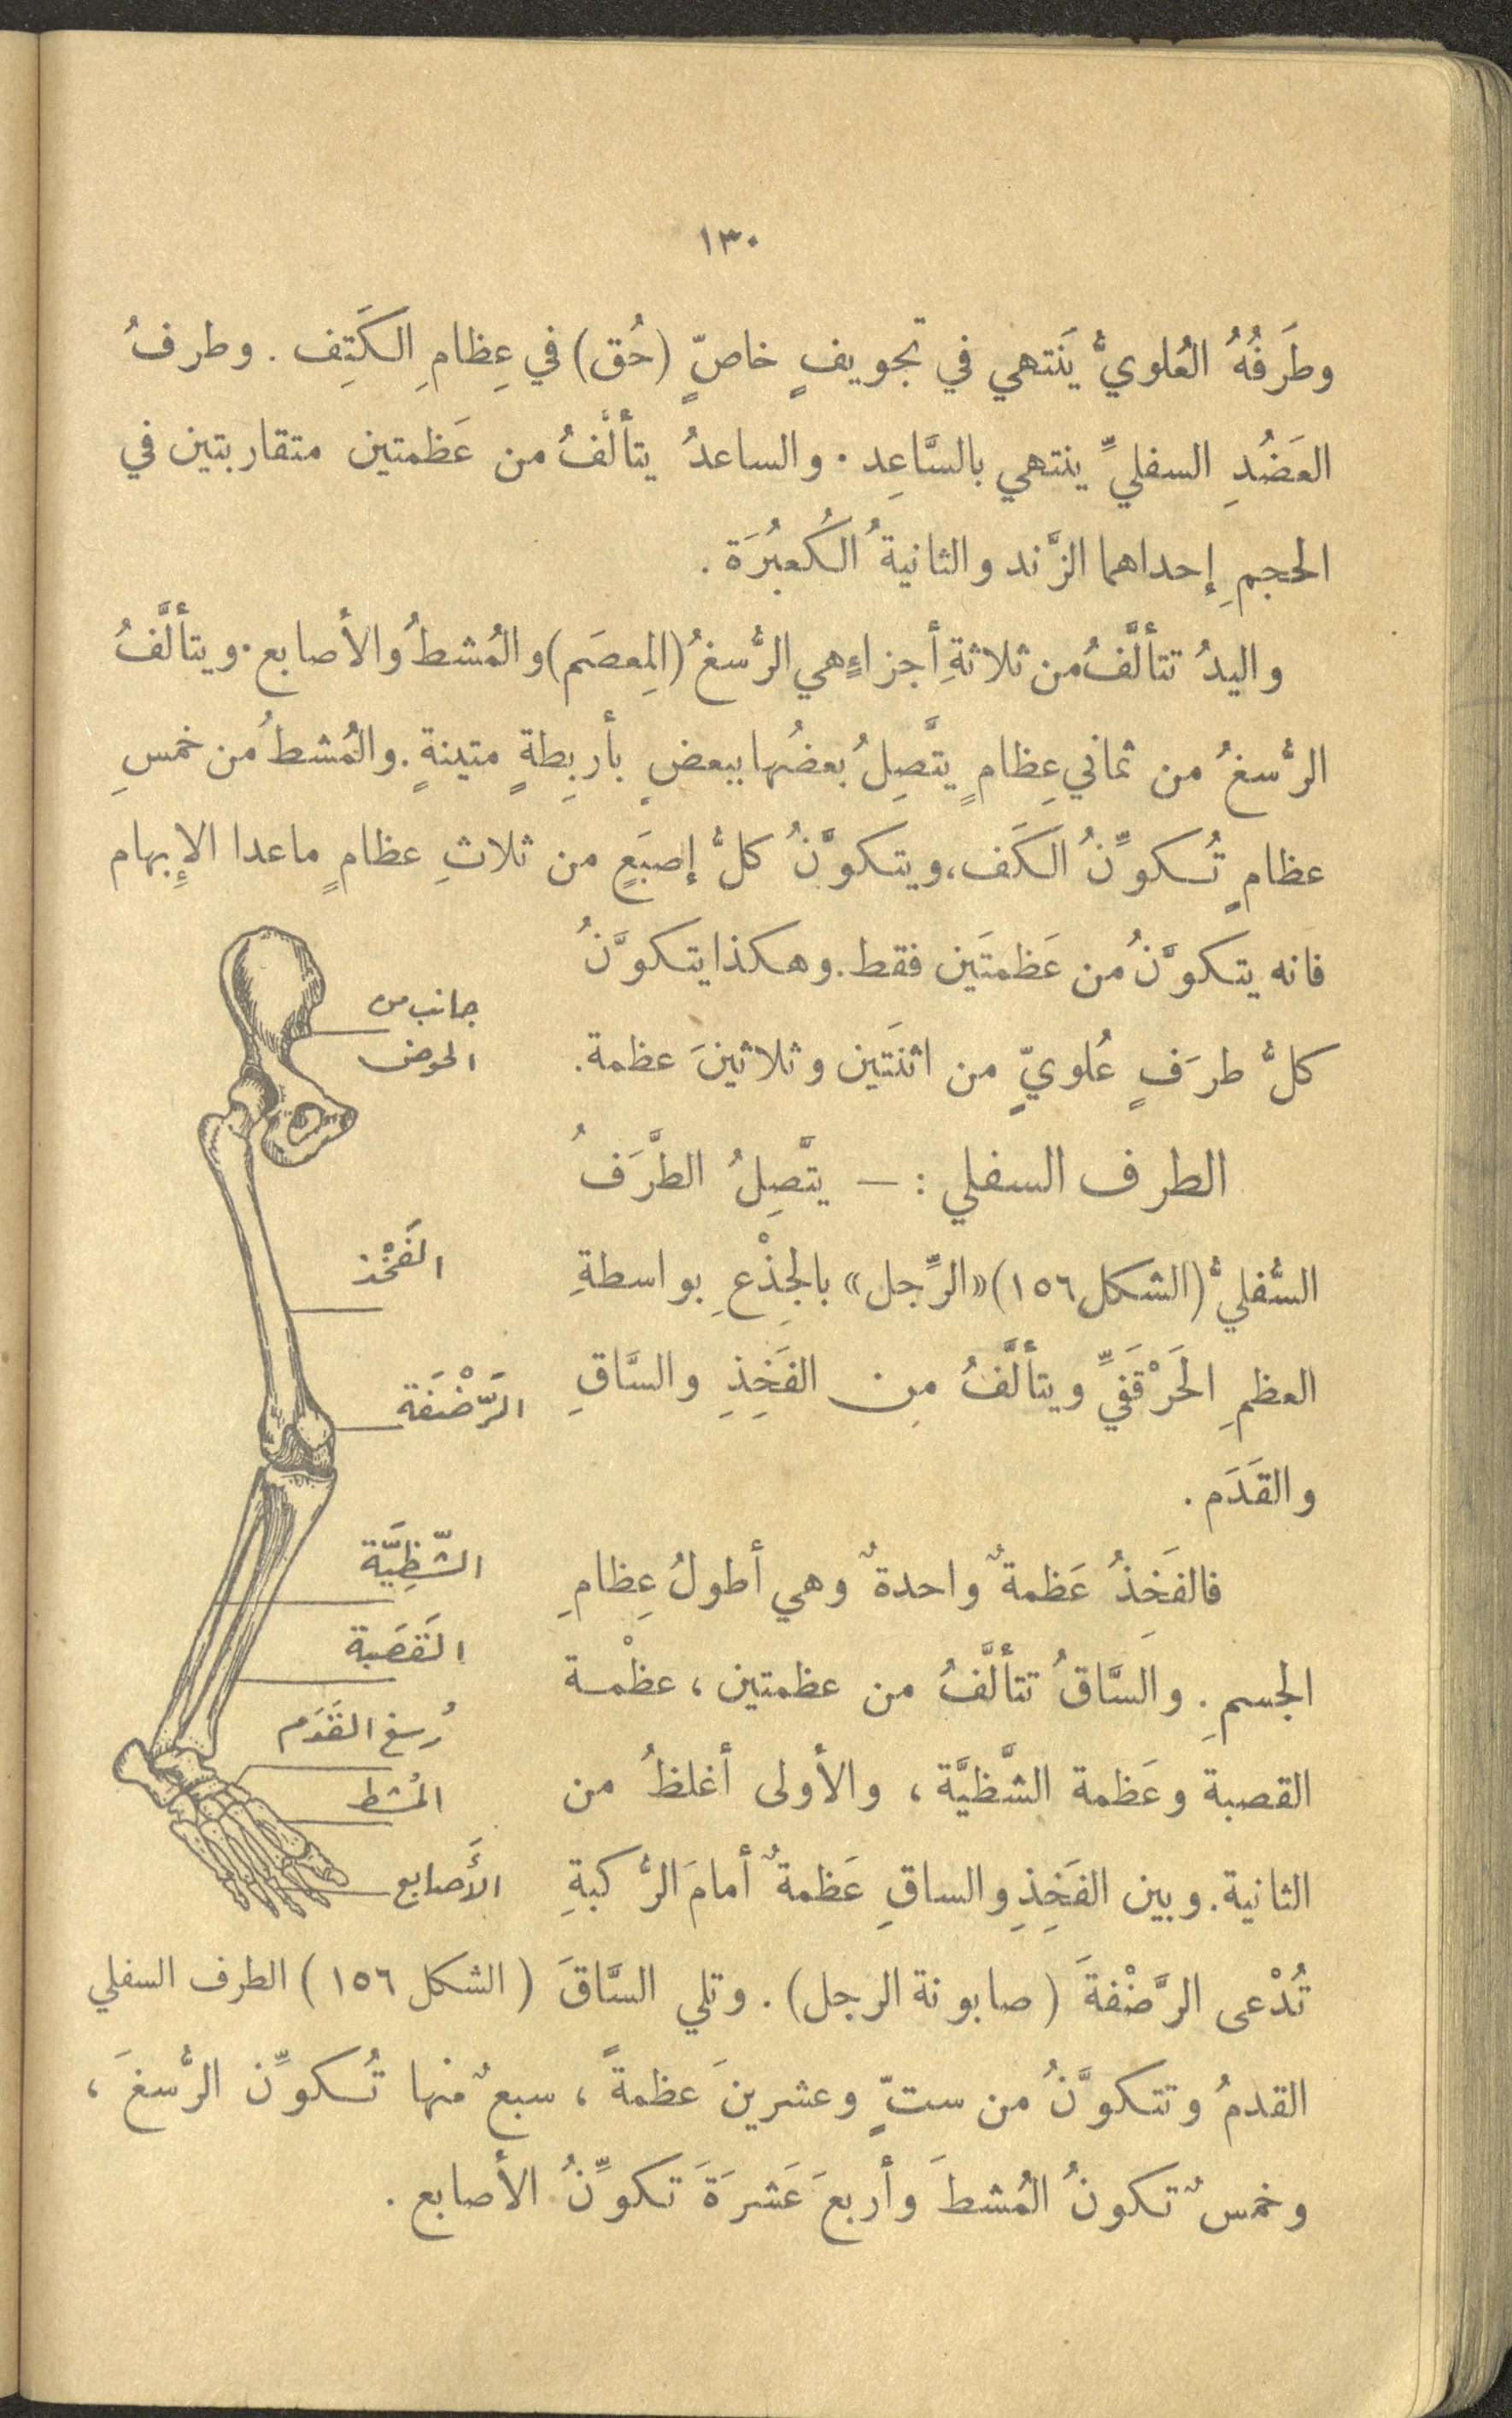 ١٣٠
وطَرَفُهُ العُلويُّ يَنتهي في تجويفٍ خاصٍّ (حُق) في عِظامِ الكَتِف . وطرفُ
العَضُدِ السفليِّ ينتهي بالسَّاعِد . والساعدُ يتألَّفُ من عَظمتين متقاربتين في
الحجمِ إحداهما الزَّند والثانيةُ الكُعبُرَة .
واليدُ تتألَّفُ من ثلاثةِ أجزاءٍ هي الرُّسغُ (المِعصَم) والمُشطُ والأصابع . ويتألَّفُ
الرُّسغُ من ثماني عِظامٍ يتَّصِلُ بعضُها ببعضٍ بأربِطةٍ متينةٍ . والمُشطُ من خمسِ
عظامٍ تُكوِّنُ الكَف ، ويتكوَّنُ كلُّ إصبَعٍ من ثلاثِ عظامٍ ماعدا الإِبهام
فانه يتكوَّنُ من عَظمتَين فقط . وهكذا يتكوَّنُ
كلُّ طرَفٍ عُلويٍّ من اثنَتَين وثلاثينَ عظمة .
الطرف السفلي : — يتَّصِلُ الطَّرَفُ
السُّفليُّ (الشكل ١٥٦) «الرِّجل» بالجِذْعِ بواسطةِ
العظمِ الحَرْقَفيِّ ويتألَّفُ مِن الفَخِذِ والسَّاقِ
والقَدَم .
فالفَخِذُ عَظمةٌ واحدةٌ وهي أطولُ عِظامِ
الجسمِ . والسَّاقُ تتألَّفُ من عظمتين ، عظْمة
القصبة وعَظمة الشَّظيَّة ، والأولى أغلظُ من
الثانية . وبين الفَخِذِ والساقِ عَظمةٌ أمامَ الرُّكبةِ
تُدْعى الرَّضْفةَ (صابونة الرجل) . وتلي السَّاقَ
القدمُ وتتكوَّنُ من ستٍّ وعشرينَ عظمةً ، سبعٌ منها تُكوِّن الرُّسغَ ،
وخمسٌ تكونُ المُشطَ وأربعَ عَشرَةَ تكوِّنُ الأصابع .
جانب من
الحوض
الفَخْذ
الرَّضْنَفَة
الشَّظِيَّة
القَصَبة
رُسغ القَدَم
المُشط
الأَصابع
(الشكل ١٥٦) الطرف السفلي